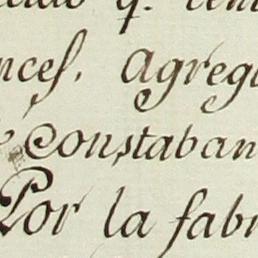 q.
nces, agrega
constaban
Por la fabr